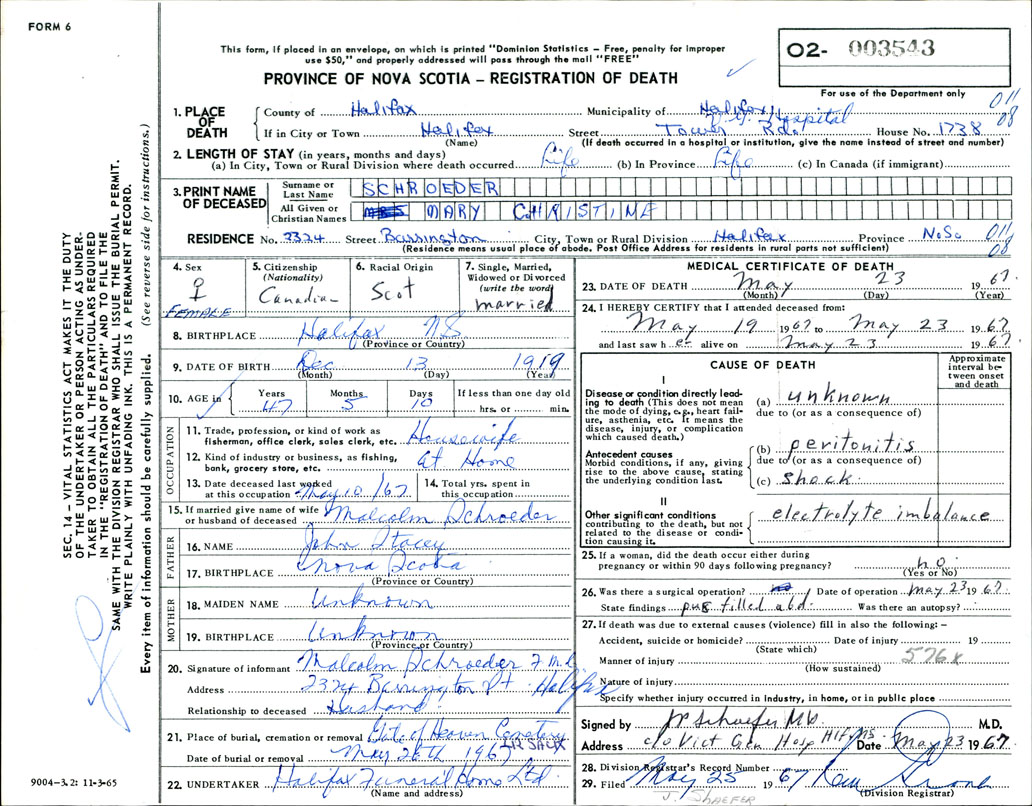 FORM 6
This form, if placed in an envelope, on which is printed "Dominion Statistics – Free, penalty for improper
use $50," and properly addressed will pass through the mail "FREE"
PROVINCE OF NOVA SCOTIA – REGISTRATION OF DEATH
O2- 003543
For use of the Department only
011
08
1. PLACE OF DEATH
County of Halifax Municipality of Halifax
V. G. Hospital
If in City or Town Halifax Street Tower Rd. House No. 1738
(Name) (If death occurred in a hospital or institution, give the name instead of street and number)
2. LENGTH OF STAY (in years, months and days)
(a) In City, Town or Rural Division where death occurred Life (b) In Province Life (c) In Canada (if immigrant)
3. PRINT NAME OF DECEASED
Surname or Last Name SCHROEDER
All Given or Christian Names MRS MARY CHRISTINE
RESIDENCE No. 2324 Street Barrington City, Town or Rural Division Halifax Province N.S. 011
08
(Residence means usual place of abode. Post Office Address for residents in rural parts not sufficient)
4. Sex ♀ FEMALE
5. Citizenship (Nationality) Canadian
6. Racial Origin Scot
7. Single, Married, Widowed or Divorced (write the word) married
8. BIRTHPLACE Halifax NS
(Province or Country)
9. DATE OF BIRTH Dec 13 1919
(Month) (Day) (Year)
10. AGE in Years 47 Months 5 Days 10 If less than one day old hrs. or min.
OCCUPATION
11. Trade, profession, or kind of work as fisherman, office clerk, sales clerk, etc. Housewife
12. Kind of industry or business, as fishing, bank, grocery store, etc. at Home
13. Date deceased last worked at this occupation May 10/67
14. Total yrs. spent in this occupation
15. If married give name of wife or husband of deceased Malcolm Schroeder
FATHER
16. NAME John Stacey
17. BIRTHPLACE Nova Scotia
(Province or Country)
MOTHER
18. MAIDEN NAME Unknown
19. BIRTHPLACE Unknown
(Province or Country)
20. Signature of informant Malcolm Schroeder
Address 2324 Barrington St. Halifax
Relationship to deceased Husband
21. Place of burial, cremation or removal Gate of Heaven Cemetery
LR SACK
Date of burial or removal May 26th 1967
22. UNDERTAKER Halifax Funeral Home Ltd.
(Name and address)
MEDICAL CERTIFICATE OF DEATH
23. DATE OF DEATH May 23 1967
(Month) (Day) (Year)
24. I HEREBY CERTIFY that I attended deceased from:
May 19 1967 to May 23 1967
and last saw her alive on May 23 1967
CAUSE OF DEATH
Approximate interval between onset and death
I
Disease or condition directly leading to death (This does not mean the mode of dying, e.g., heart failure, asthenia, etc. It means the disease, injury, or complication which caused death.)
(a) unknown
due to (or as a consequence of)
Antecedent causes
Morbid conditions, if any, giving rise to the above cause, stating the underlying condition last.
(b) peritonitis
due to (or as a consequence of)
(c) shock.
II
Other significant conditions
contributing to the death, but not related to the disease or condition causing it.
electrolyte imbalance
25. If a woman, did the death occur either during pregnancy or within 90 days following pregnancy? no
(Yes or No)
26. Was there a surgical operation? Date of operation May 23 1967
State findings pus filled abd. Was there an autopsy?
27. If death was due to external causes (violence) fill in also the following: –
Accident, suicide or homicide? Date of injury 19
(State which)
576x
Manner of injury
(How sustained)
Nature of injury
Specify whether injury occurred in industry, in home, or in public place
Signed by Jr Schaefer MD. M.D.
Address c/o Vict Gen Hosp Hlfx NS. Date May 23 1967.
28. Division Registrar's Record Number
29. Filed May 25 1967
(Division Registrar)
J. SHAEFER
SEC. 14 – VITAL STATISTICS ACT MAKES IT THE DUTY
OF THE UNDERTAKER OR PERSON ACTING AS UNDER-
TAKER TO OBTAIN ALL THE PARTICULARS REQUIRED
IN THE "REGISTRATION OF DEATH" AND TO FILE THE
SAME WITH THE DIVISION REGISTRAR WHO SHALL ISSUE THE BURIAL PERMIT.
WRITE PLAINLY WITH UNFADING INK. THIS IS A PERMANENT RECORD.
Every item of information should be carefully supplied. (See reverse side for instructions.)
9004–3.2: 11-3-65